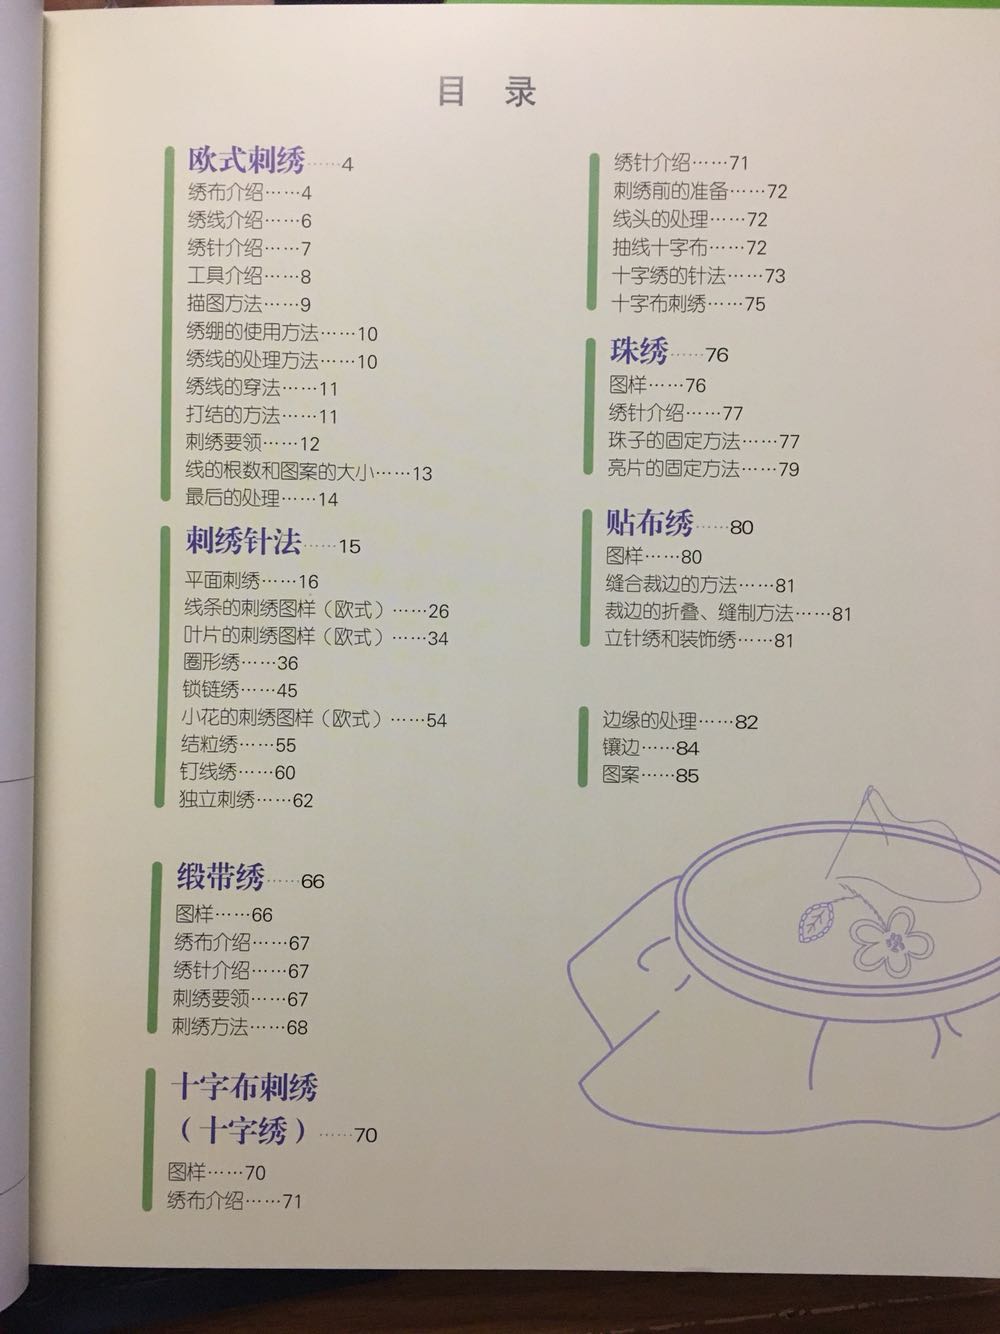 目 录
欧式刺绣……4
绣布介绍……4
绣线介绍……6
绣针介绍……7
工具介绍……8
描图方法……9
绣绷的使用方法……10
绣线的处理方法……10
绣线的穿法……11
打结的方法……11
刺绣要领……12
线的根数和图案的大小……13
最后的处理……14
刺绣针法……15
平面刺绣……16
线条的刺绣图样（欧式）……26
叶片的刺绣图样（欧式）……34
圈形绣……36
锁链绣……45
小花的刺绣图样（欧式）……54
结粒绣……55
钉线绣……60
独立刺绣……62
缎带绣……66
图样……66
绣布介绍……67
绣针介绍……67
刺绣要领……67
刺绣方法……68
十字布刺绣
（十字绣）……70
图样……70
绣布介绍……71
绣针介绍……71
刺绣前的准备……72
线头的处理……72
抽线十字布……72
十字绣的针法……73
十字布刺绣……75
珠绣……76
图样……76
绣针介绍……77
珠子的固定方法……77
亮片的固定方法……79
贴布绣……80
图样……80
缝合裁边的方法……81
裁边的折叠、缝制方法……81
立针绣和装饰绣……81
边缘的处理……82
镶边……84
图案……85